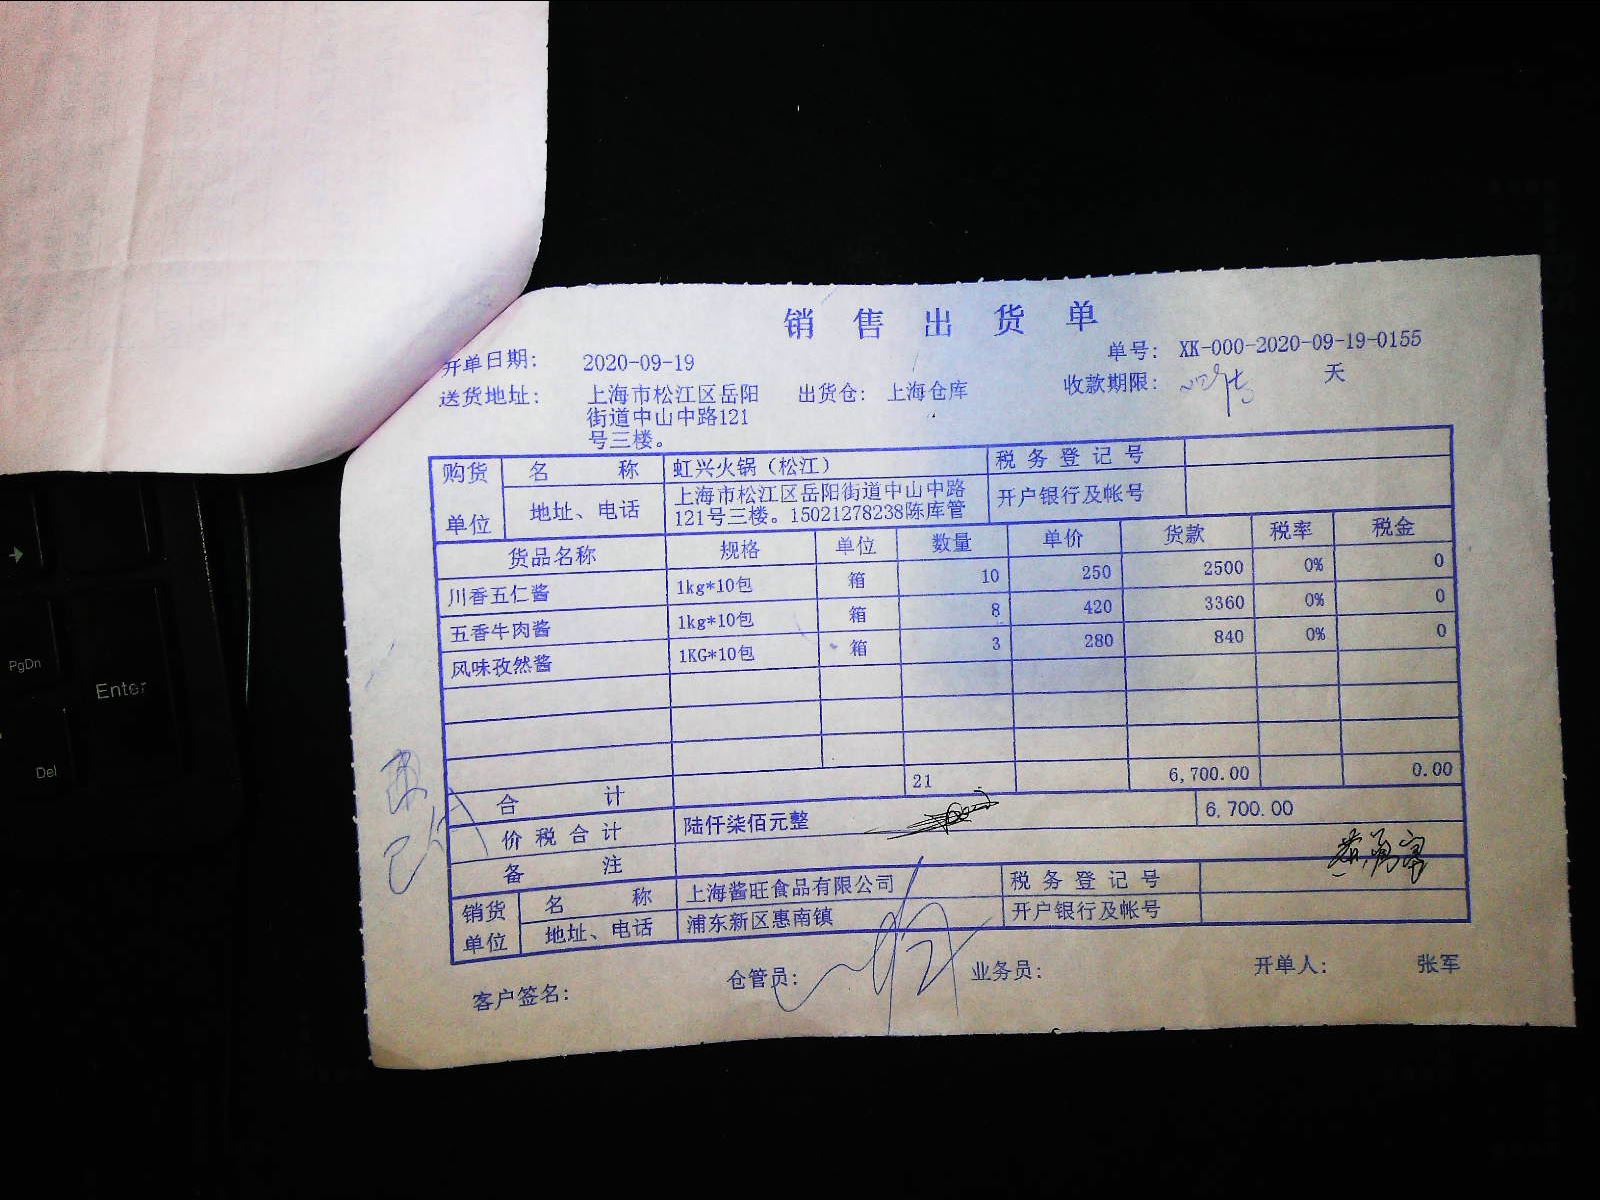 销售出货单
开单日期: 2020-09-19 单号: XK-000-2020-09-19-0155
送货地址: 上海市松江区岳阳街道中山中路121号三楼。 出货仓: 上海仓库 收款期限: 天
购货单位 名称 虹兴火锅（松江） 税务登记号
地址、电话 上海市松江区岳阳街道中山中路121号三楼。15021278238陈库管 开户银行及帐号
货品名称 规格 单位 数量 单价 货款 税率 税金
川香五仁酱 1kg*10包 箱 10 250 2500 0% 0
五香牛肉酱 1kg*10包 箱 8 420 3360 0% 0
风味孜然酱 1KG*10包 箱 3 280 840 0% 0
合计 21 6,700.00 0.00
价税合计 陆仟柒佰元整 6,700.00
备注
销货单位 名称 上海酱旺食品有限公司 税务登记号
地址、电话 浦东新区惠南镇 开户银行及帐号
客户签名: 仓管员: 业务员: 开单人: 张军
PgDn
Enter
Del